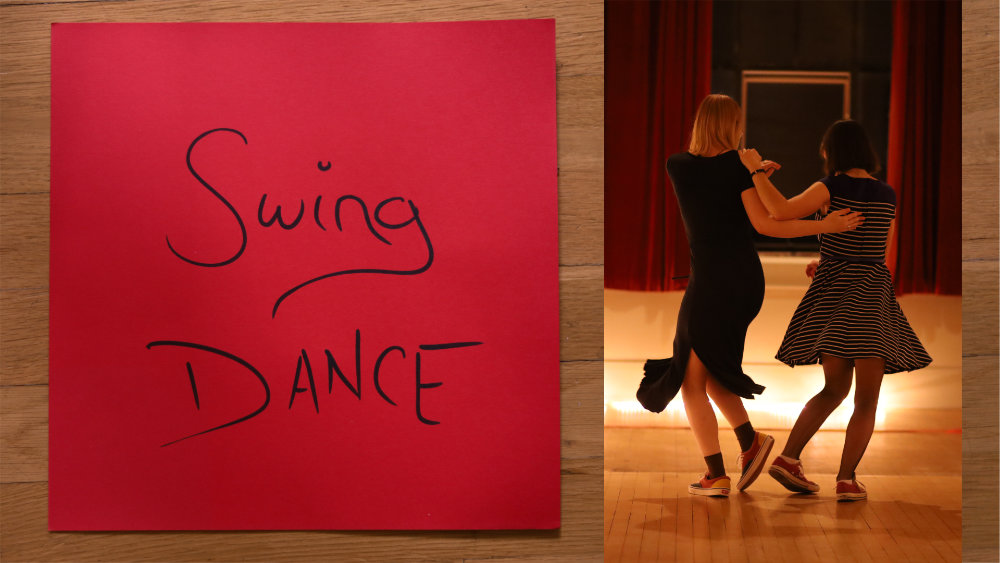 Swing
DANCE